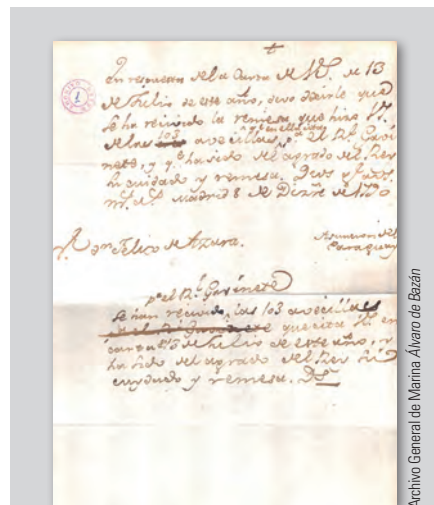 En respuesta de la Carta de V. de 13
de Julio de este año, devo decirle que
se ha recivido la remesa que hizo V.
de las 103 avecillas, el Rl. Gavi-
nete, y qe. ha sido del agrado del Rey
su cuidado y remesa. Dios
Madrid 8 de Dizre. de
Dn. Felix de Azara.
Asuncion del
Paraguay
pa. el Rl. Gavinete
Se han recivido, las 103 avecillas
que cita V. en
carta de 13 de Julio de este año, y
ha sido del agrado del Rey su
cuydado y remesa. Ds.
Archivo General de Marina Álvaro de Bazán